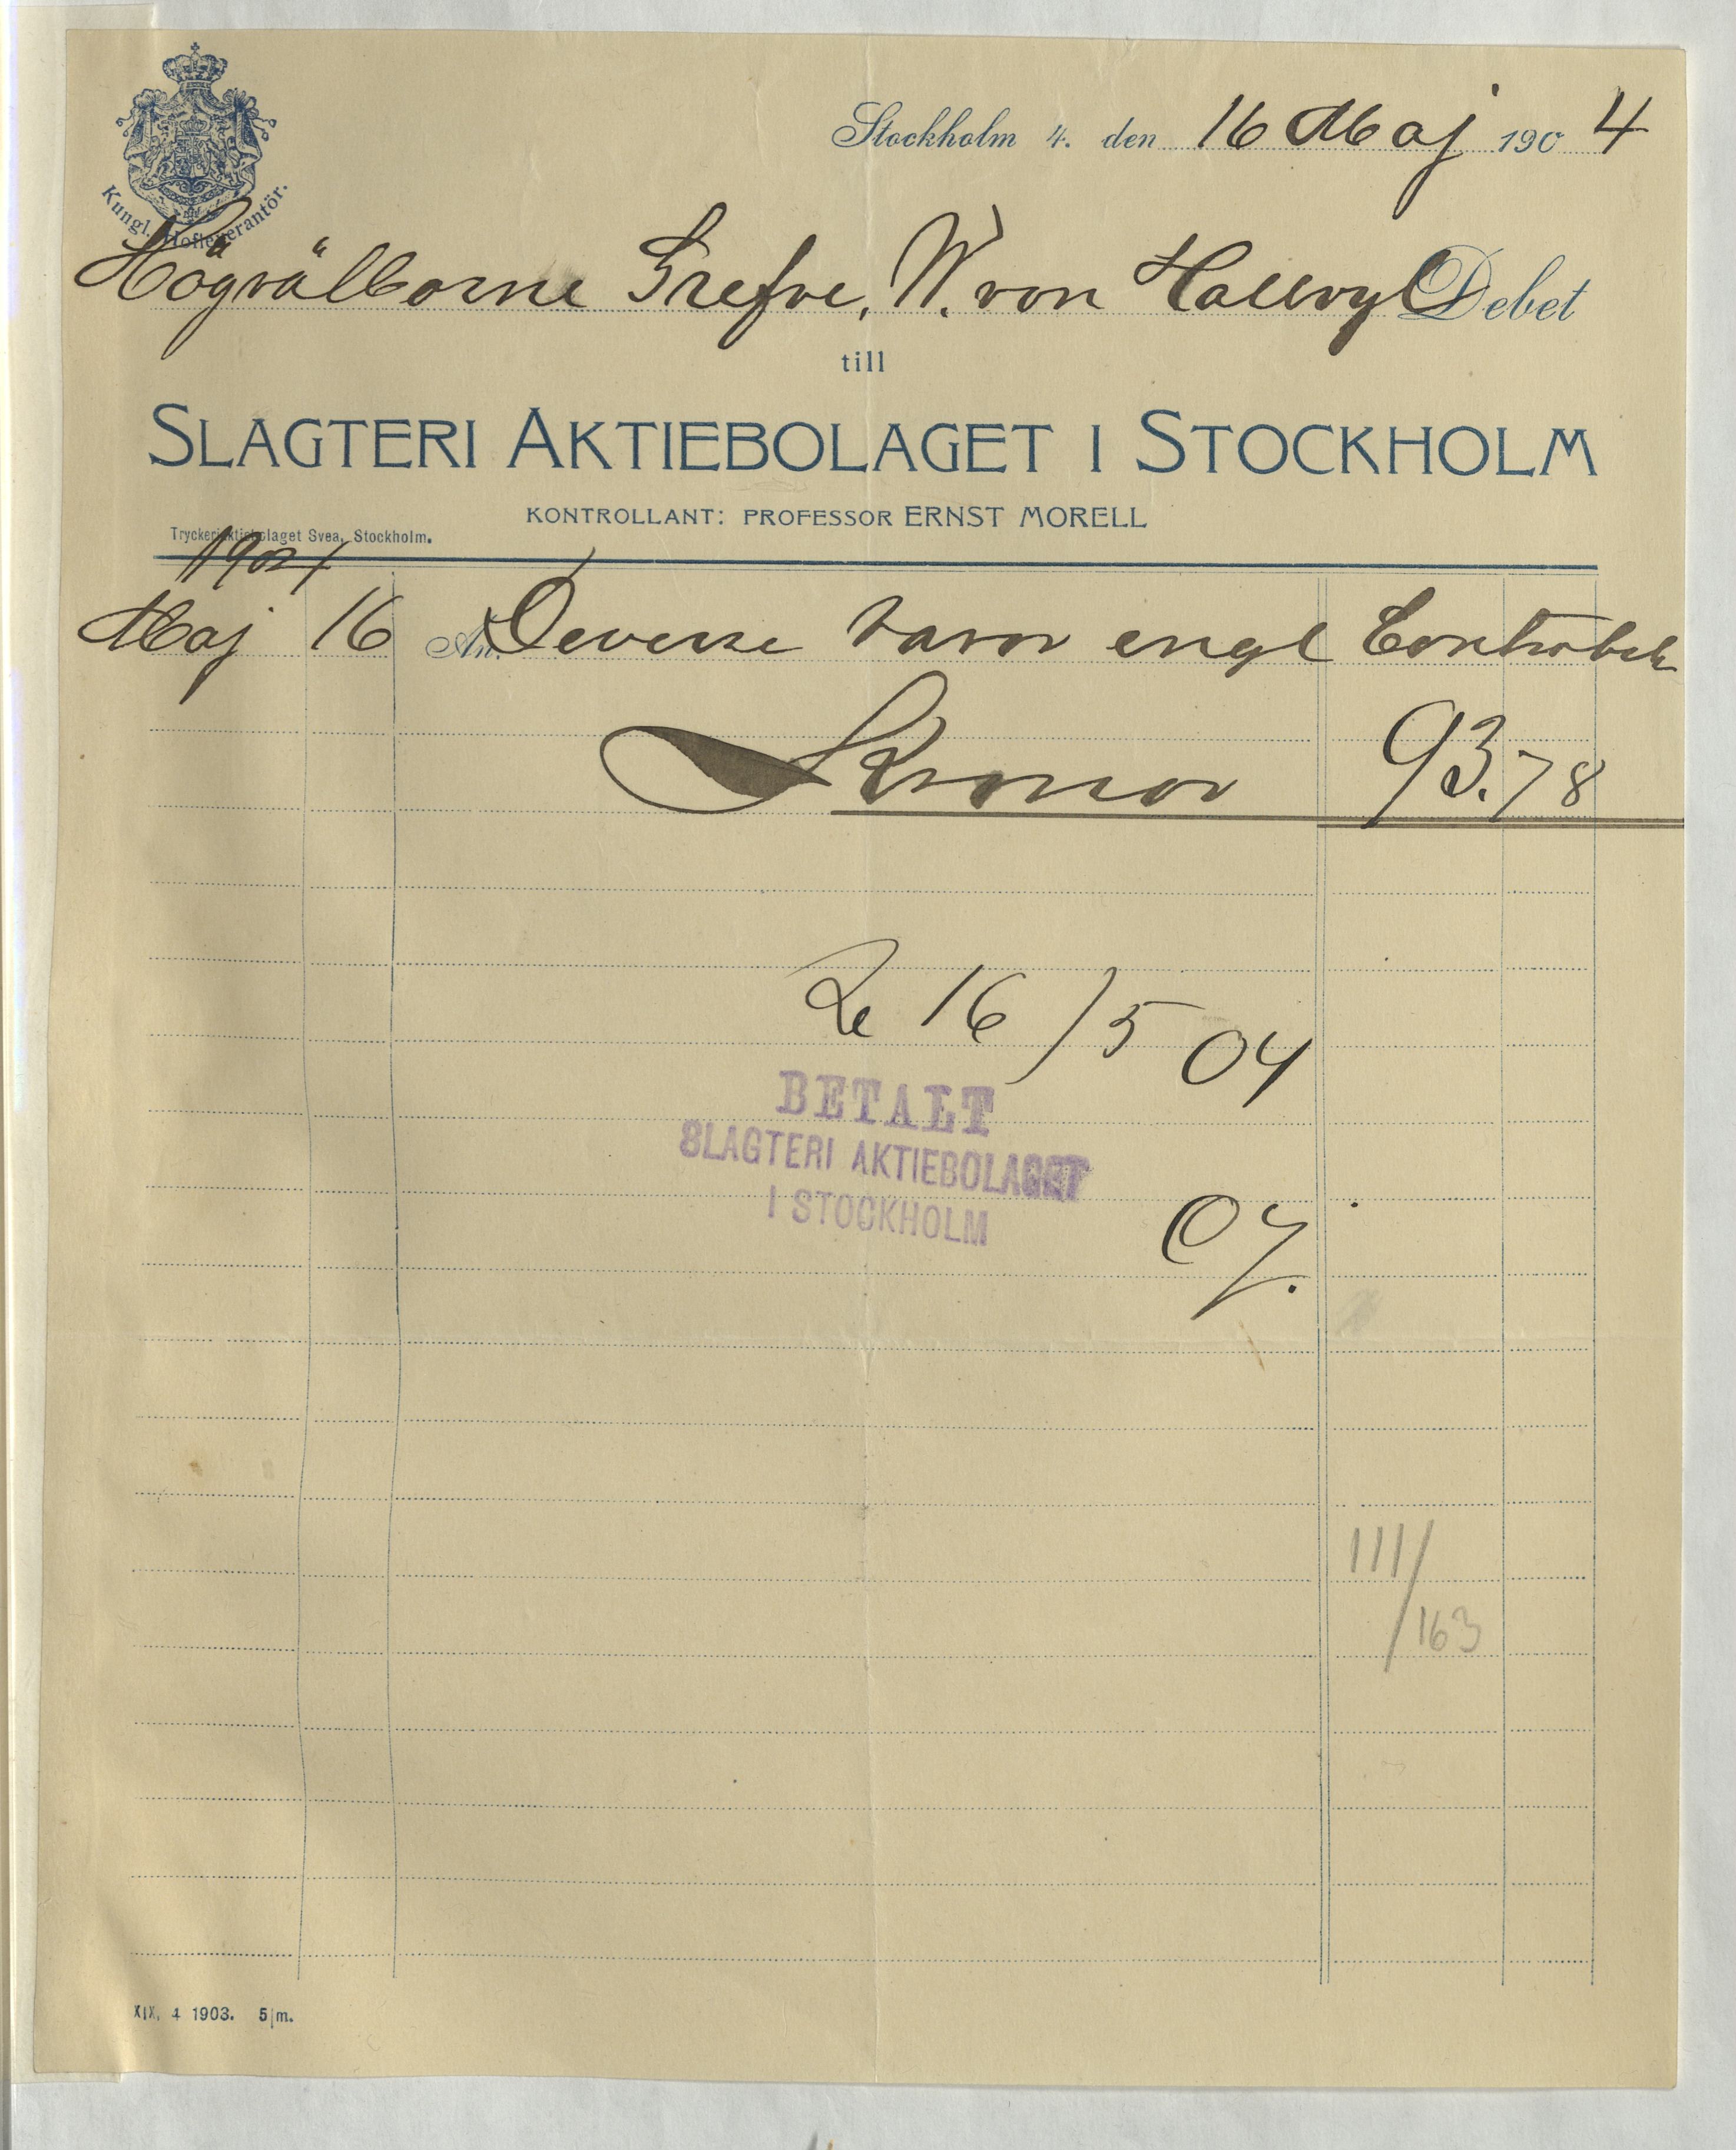 Kungl. Hofleverantör.
Stockholm 4. den 16 Maj 1904
Högvälborne Grefve, W. von Hallwyl Debet
till
SLAGTERI AKTIEBOLAGET I STOCKHOLM
KONTROLLANT: PROFESSOR ERNST MORELL
Tryckeriaktiebolaget Svea, Stockholm.
1904
Maj 16 An Deverse varor engl Contrabok
Kronor 93.78
16/5 04
BETALT
SLAGTERI AKTIEBOLAGET
I STOCKHOLM
111/163
XIX, 4 1903. 5|m.